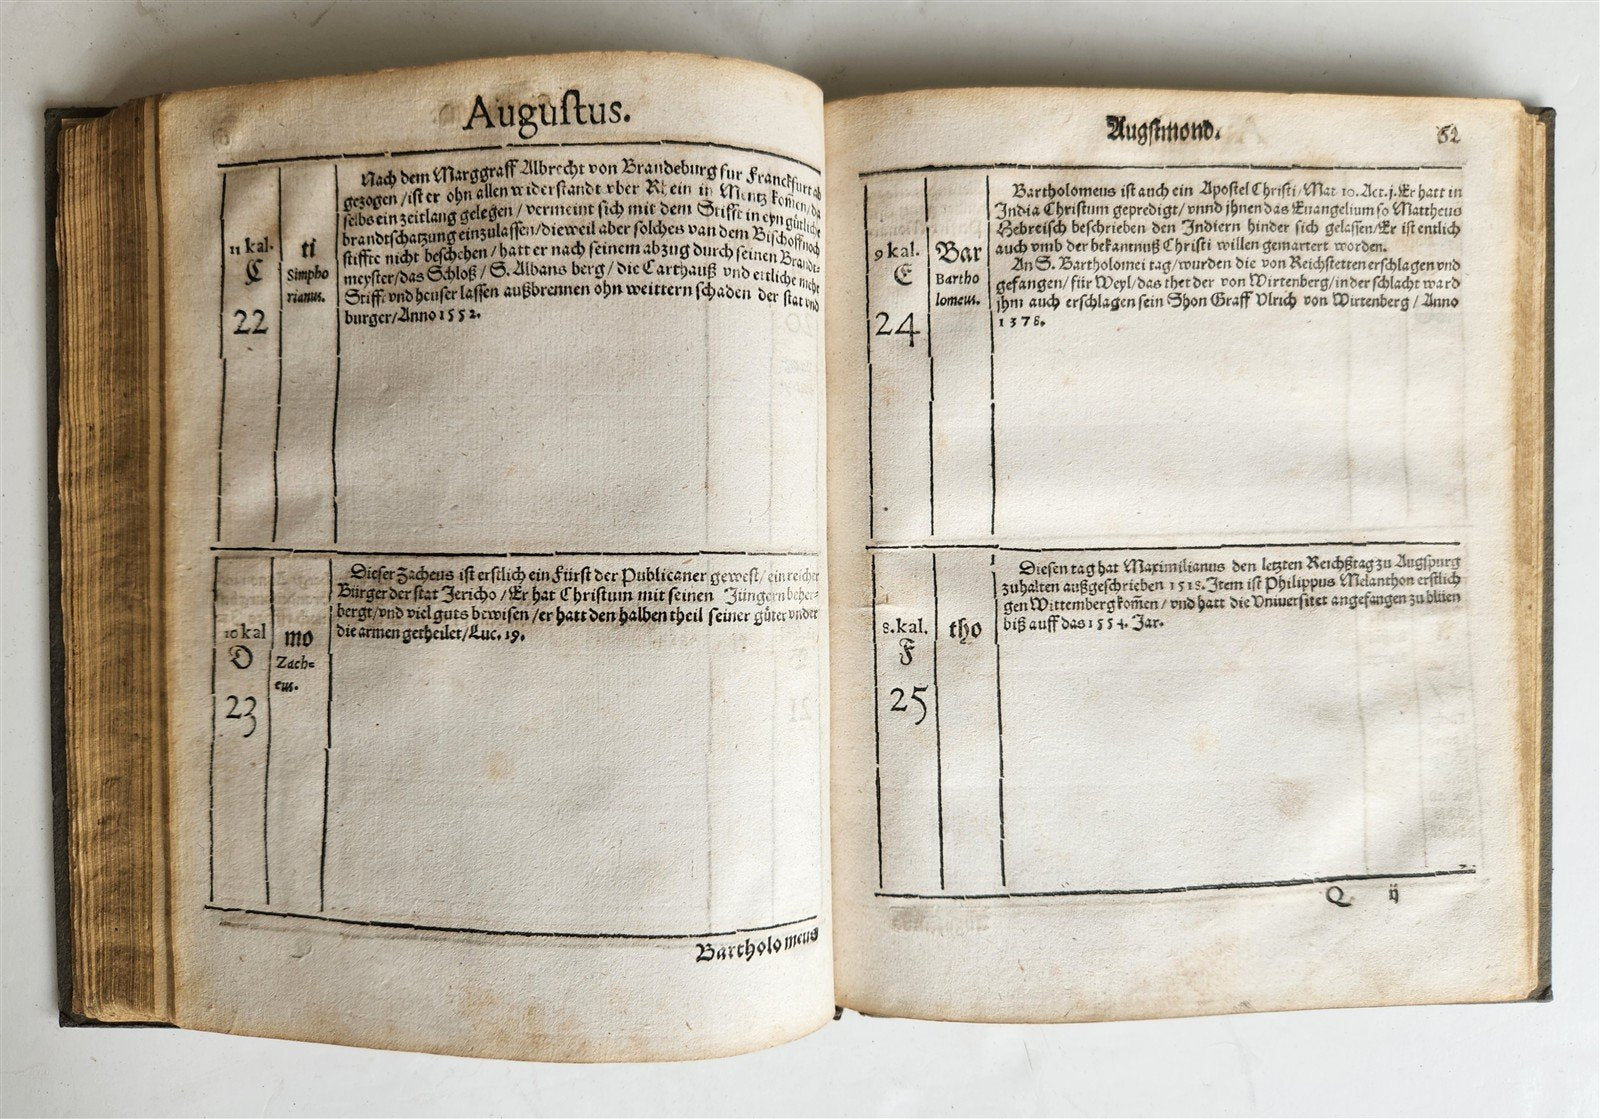 Auguſtus.
11 kal.
C
22
ti
Simpho
rianus.
Nach dem Marggraff Albrecht von Brandeburg fur Franckfurt ab
gezogen / iſt er ohn allen widerſtandt vber Rhein in Mentz kom̃en / da
ſelbs ein zeitlang gelegen / vermeint ſich mit dem Stifft in eyn gütliche
brandtſchatzung einzulaſſen / dieweil aber ſolches von dem Biſchoff noch
ſtiffte nicht beſchehen / hatt er nach ſeinem abzug durch ſeinen Brandt-
meyſter / das Schloß / S. Albans berg / die Carthauß vnd ettliche mehr
Stifft vnd heuſer laſſen außbrennen ohn weittern ſchaden der ſtat vnd
burger / Anno 1552.
10 kal
D
23
mo
Zach=
eus.
Dieſer Zacheus iſt erſtlich ein Fürſt der Publicaner geweſt / ein reicher
Bürger der ſtat Jericho / Er hat Chriſtum mit ſeinen Jüngern beher-
bergt / vnd viel guts bewiſen / er hatt den halben theil ſeiner güter vnder
die armen getheilet / Luc. 19.
Bartholomeus
Augſtmond.
62
9 kal.
E
24
Bar
Bartho
lomeus.
Bartholomeus iſt auch ein Apoſtel Chriſti / Mat 10. Act. j. Er hatt in
India Chriſtum gepredigt / vnnd jhnen das Euangelium ſo Mattheus
Hebreiſch beſchrieben den Indiern hinder ſich gelaſſen / Er iſt entlich
auch vmb der bekantnuß Chriſti willen gemartert worden.
An S. Bartholomei tag / wurden die von Reichſtetten erſchlagen vnd
gefangen / für Weyl / das thet der von Wirtenberg / in der ſchlacht ward
jhm auch erſchlagen ſein Shon Graff Vlrich von Wirtenberg / Anno
1378.
8. kal.
F
25
tho
Dieſen tag hat Maximilianus den letzten Reichßtag zu Augſpurg
zuhalten außgeſchrieben 1518. Item iſt Philippus Melanthon erſtlich
gen Wittemberg kom̃en / vnd hatt die Vniuerſitet angefangen zu blüen
biß auff das 1554. Jar.
Q ij